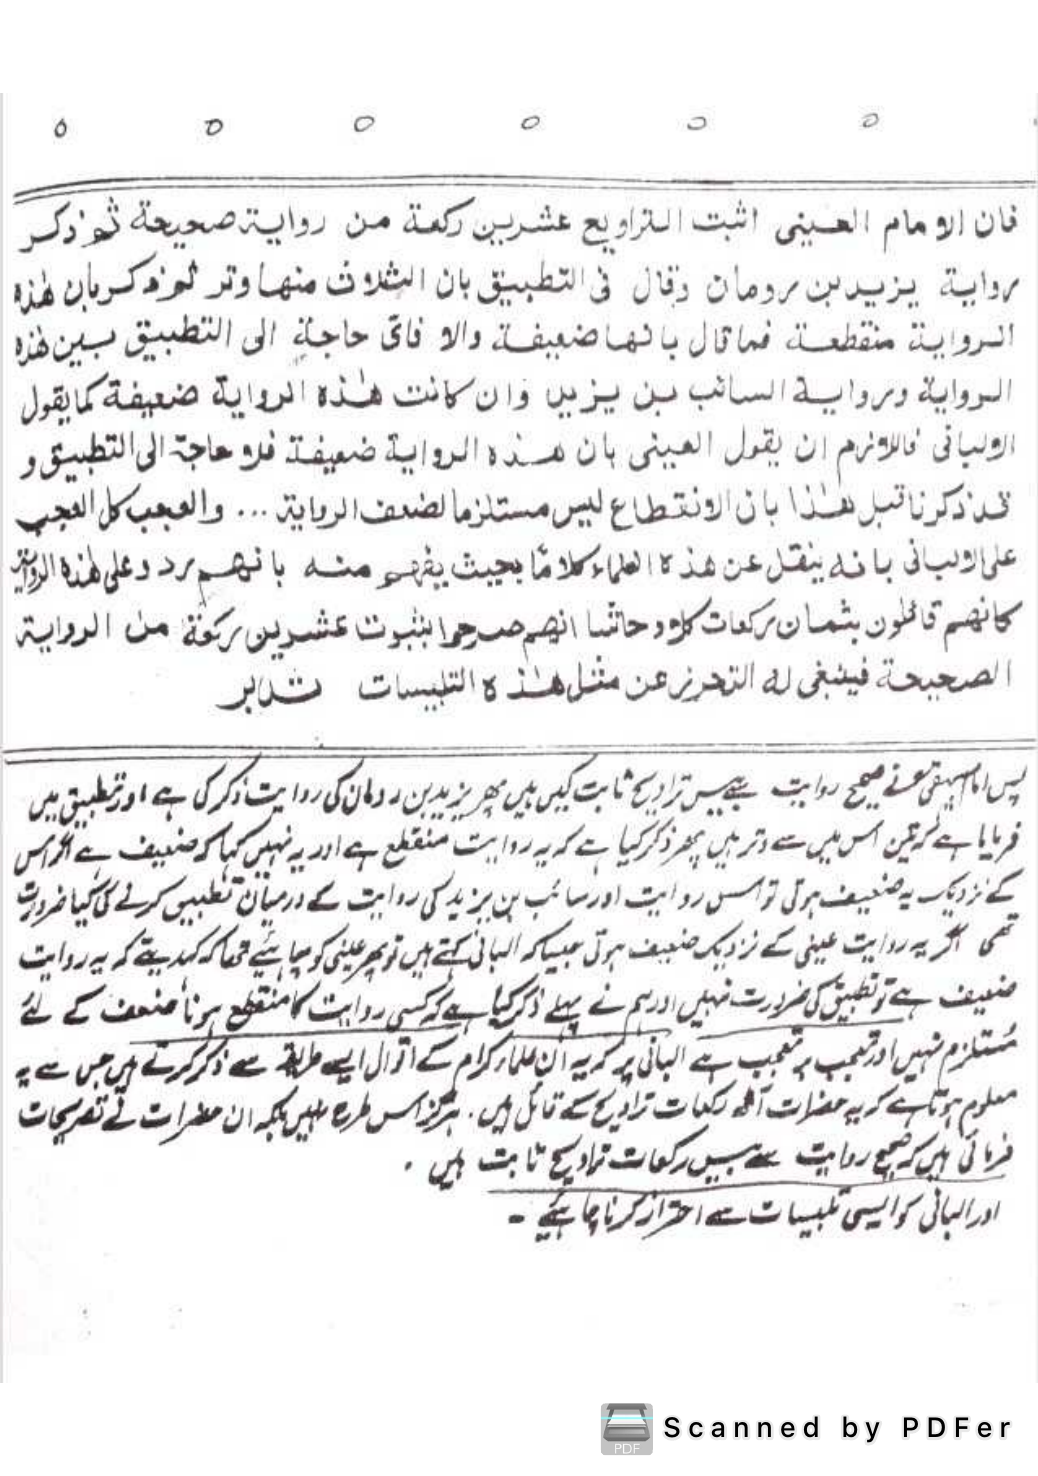 فان الامام العينى اثبت التراويح عشرين ركعة من رواية صحيحة ثم ذكر
رواية يزيد بن رومان وقال فى التطبيق بان الثلاث منها وتر ثم ذكر بان هذه
الرواية منقطعة فما قال بانها ضعيفة والا فاى حاجة الى التطبيق بين هذه
الرواية ورواية السائب بن يزيد وان كانت هذه الرواية ضعيفة كما يقول
الالبانى فاللازم ان يقول العينى بان هذه الرواية ضعيفة فلا حاجة الى التطبيق و
قد ذكرنا قبل هذا بان الانقطاع ليس مستلزما لضعف الرواية ... والعجب كل العجب
على الالبانى بانه ينقل عن هذه العلماء كلاما بحيث يفهم منه بانهم يردو على هذه الرواية
كانهم قائلون بثمان ركعات كلا وحاشا انهم صرحوا بثبوت عشرين ركعة من الرواية
الصحيحة فينبغى له التحرز عن مثل هذه التلبيسات تدبر
پس امام بیہقی نے صحیح روایت سے بیس تراویح ثابت کیں ہیں پھر یزید بن رومان کی روایت ذکر کی ہے اور تطبیق میں
فرمایا ہے کہ تین اس میں سے وتر ہیں پھر ذکر کیا ہے کہ یہ روایت منقطع ہے اور یہ نہیں کہا کہ ضعیف ہے اگر اس
کے نزدیک یہ ضعیف ہوتی تو اس روایت اور سائب بن یزید کی روایت کے درمیان تطبیق کرنے کی کیا ضرورت
تھی اگر یہ روایت عینی کے نزدیک ضعیف ہوتی جیسا کہ البانی کہتے ہیں تو پھر عینی کو چاہئیے تھا کہ کہدیتے کہ یہ روایت
ضعیف ہے تو تطبیق کی ضرورت نہیں اور ہم نے پہلے ذکر کیا ہے کہ کسی روایت کا منقطع ہونا ضعف کے لئے
مُستلزم نہیں اور تعجب پر تعجب ہے البانی پر کہ یہ ان علماء کرام کے اقوال ایسے طریقہ سے ذکر کرتے ہیں جس سے یہ
معلوم ہوتا ہے کہ یہ حضرات آٹھ رکعات تراویح کے قائل ہیں۔ ہرگز اس طرح نہیں بلکہ ان حضرات نے تصریحات
فرمائی ہیں کہ صحیح روایت سے بیس رکعات تراویح ثابت ہیں ۔
اور البانی کو ایسی تلبیسات سے احتراز کرنا چاہئیے ۔
PDF
Scanned by PDFer